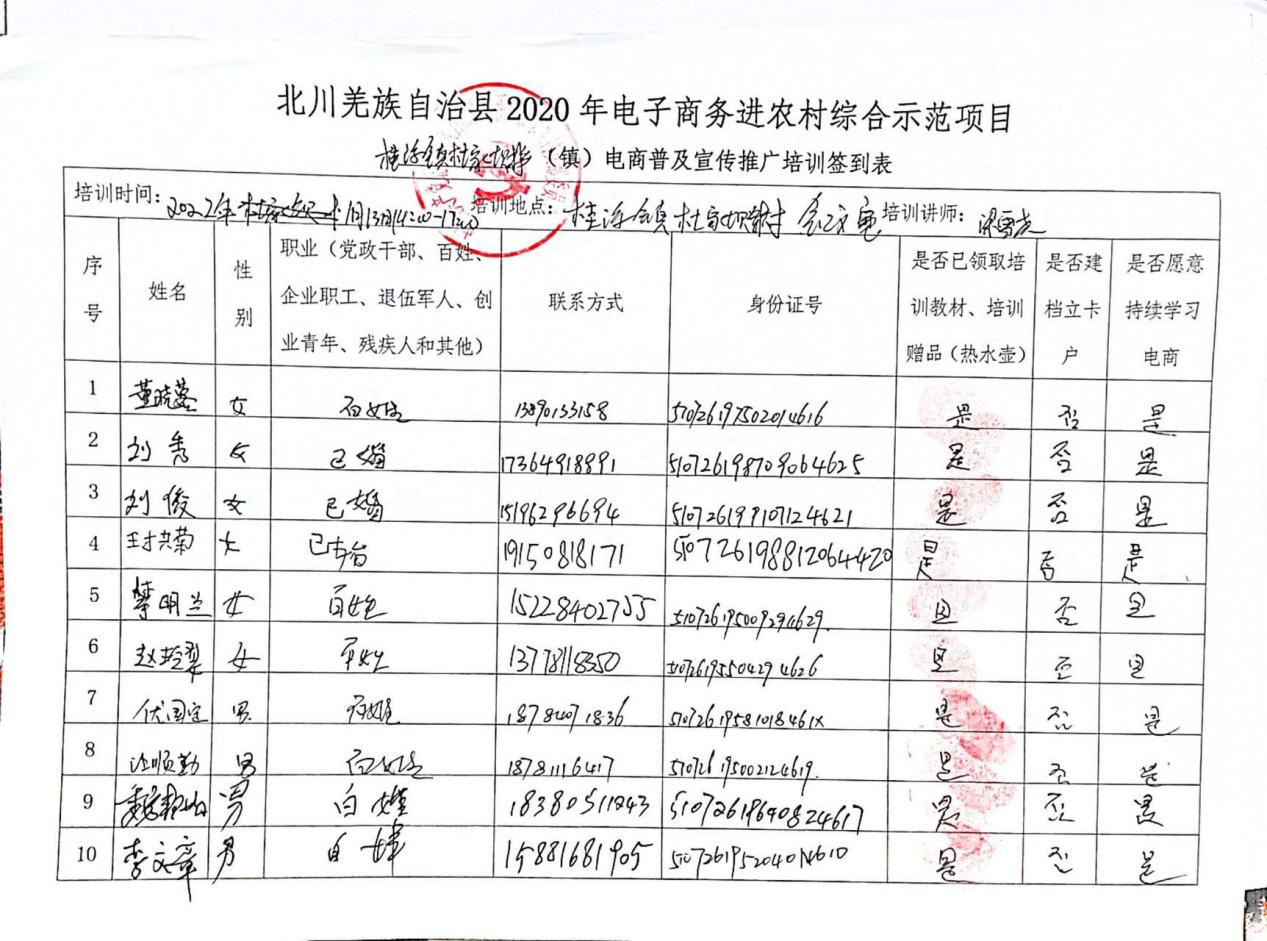 北川羌族自治县 2020 年电子商务进农村综合示范项目
桂溪镇杜家坝村（镇）电商普及宣传推广培训签到表
培训时间：2022年 1月13日14:00-17:00 培训地点：桂溪镇杜家坝村 培训讲师：
序号 姓名 性别 职业（党政干部、百姓、企业职工、退伍军人、创业青年、残疾人和其他） 联系方式 身份证号 是否已领取培训教材、培训赠品（热水壶） 是否建档立卡户 是否愿意持续学习电商
1 女 百姓 510726197502014616 是 否 是
2 刘秀 女 已婚 17364918891 510726198709064625 是 否 是
3 刘俊 女 已婚 15196296694 510726199107124621 是 否 是
4 女 19150818171 510726198812064420 是 否 是
5 明兰 女 百姓 15228402755 510726195009294629 是 否 是
6 赵 女 百姓 13778118350 510726195504294626 是 否 是
7 伏国定 男 百姓 18784071836 51072619581018461X 是 否 是
8 顺勤 男 百姓 18781116417 510726195002124619 是 否 是
9 男 百姓 18380511243 51072619640824617 是 否 是
10 李文章 男 百姓 15881681905 510726195204014610 是 否 是